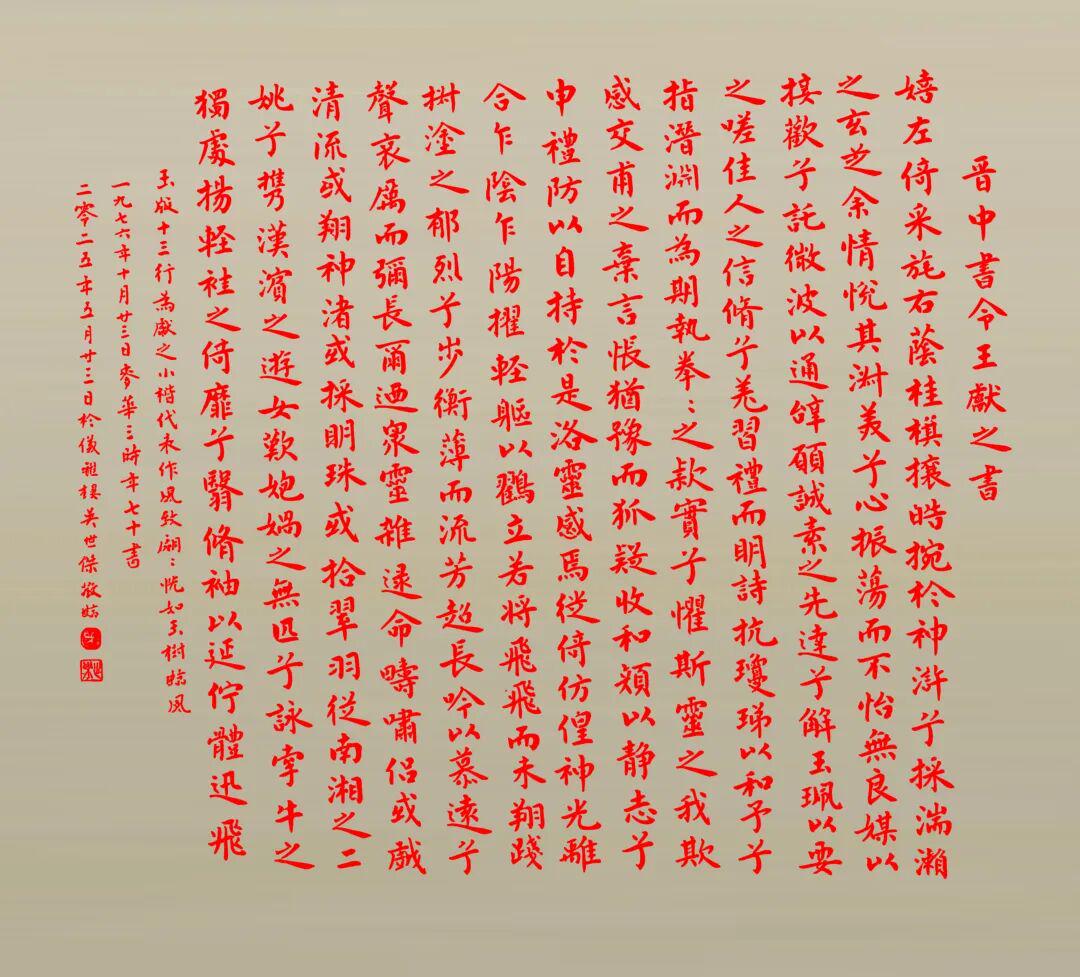 晋中書令王獻之書
嬉左倚采旄右蔭桂旗攘皓捥於神滸兮採湍瀨
之玄芝余情悅其淋美兮心振蕩而不怡無良媒以
接歡兮託微波以通辭願誠素之先達兮解玉珮以要
之嗟佳人之信脩兮羌習禮而明詩抗瓊珶以和予兮
指潛淵而為期執拳〻之款實兮懼斯靈之我欺
感交甫之棄言悵猶豫而狐疑收和顏以静志兮
申禮防以自持於是洛靈感焉徙倚仿偟神光離
合乍陰乍陽擢軽軀以鶴立若将飛飛而未翔踐
椒塗之郁烈兮步衡薄而流芳超長吟以慕遠兮
聲哀厲而彌長爾迺衆靈雜遝命疇嘯侣或戲
清流或翔神渚或採明珠或拾翠羽従南湘之二
姚兮携漢濱之遊女歎㚿媧之無匹兮詠牽牛之
獨處揚軽袿之倚靡兮翳脩袖以延佇體迅飛
玉版十三行為獻之小楷代表作風致翩〻恍如玉樹臨風
一九七六年十月廿三日麥華三時年七十書
二零二五年五月廿三日於儀雅樓吳世傑敬臨